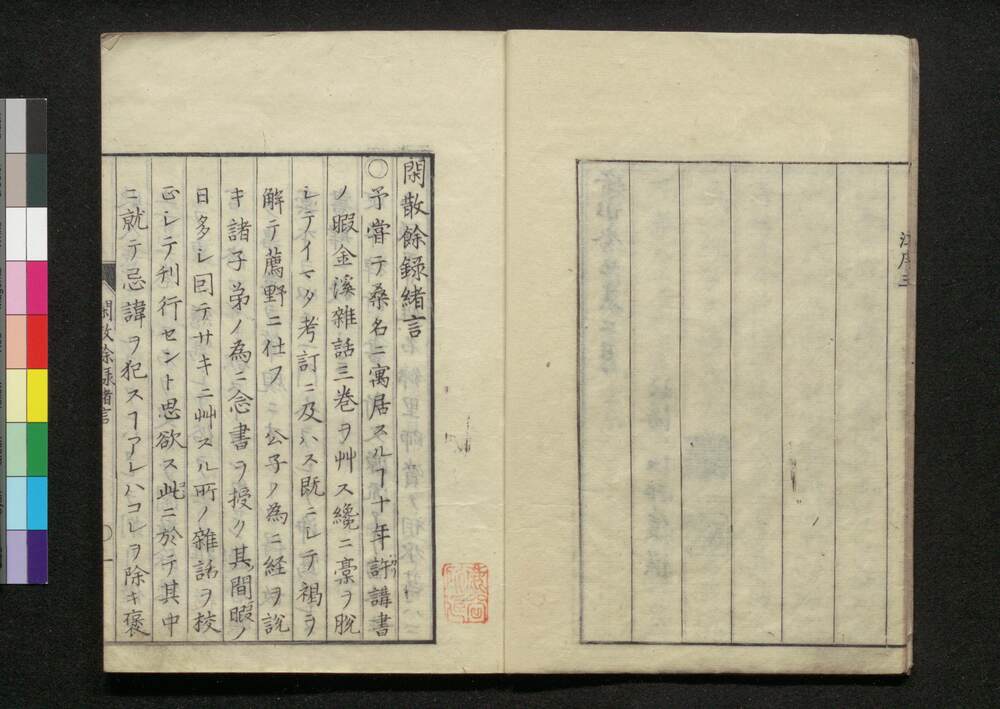 江序三
閑散餘録緒言
○予嘗テ桑名ニ寓居スルヿ十年許講書
ノ暇金溪雜話三巻ヲ艸ス纔ニ藁ヲ脱
シテイマタ考訂ニ及ハス既ニシテ褐ヲ
解テ薦野ニ仕フ公子ノ為ニ経ヲ説
キ諸子弟ノ為ニ念書ヲ授ク其間暇ノ
日多シ回テサキニ艸スル所ノ雜話ヲ校
正シテ刊行セント思欲ス此ニ於テ其中
ニ就テ忌諱ヲ犯スヿアレハコレヲ除キ褒
閑散余録緒言
○一